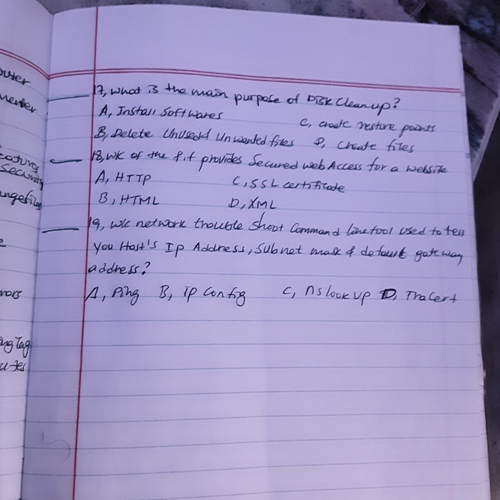 outer
17, what is the main purpose of Disk Cleanup?
A, Install Softwares
C, create restore points
B, Delete Unused/ Unwanted files D, create files
18, w/c of the f.f provides Secured web Access for a website
A, HTTP C, SSL certificate
B, HTML D, XML
19, w/c network trouble Shoot Command line tool used to tell
You Host's Ip Address, Subnet mask & default gateway
address?
A, Ping B, Ip Config C, nslookup D, Tracert